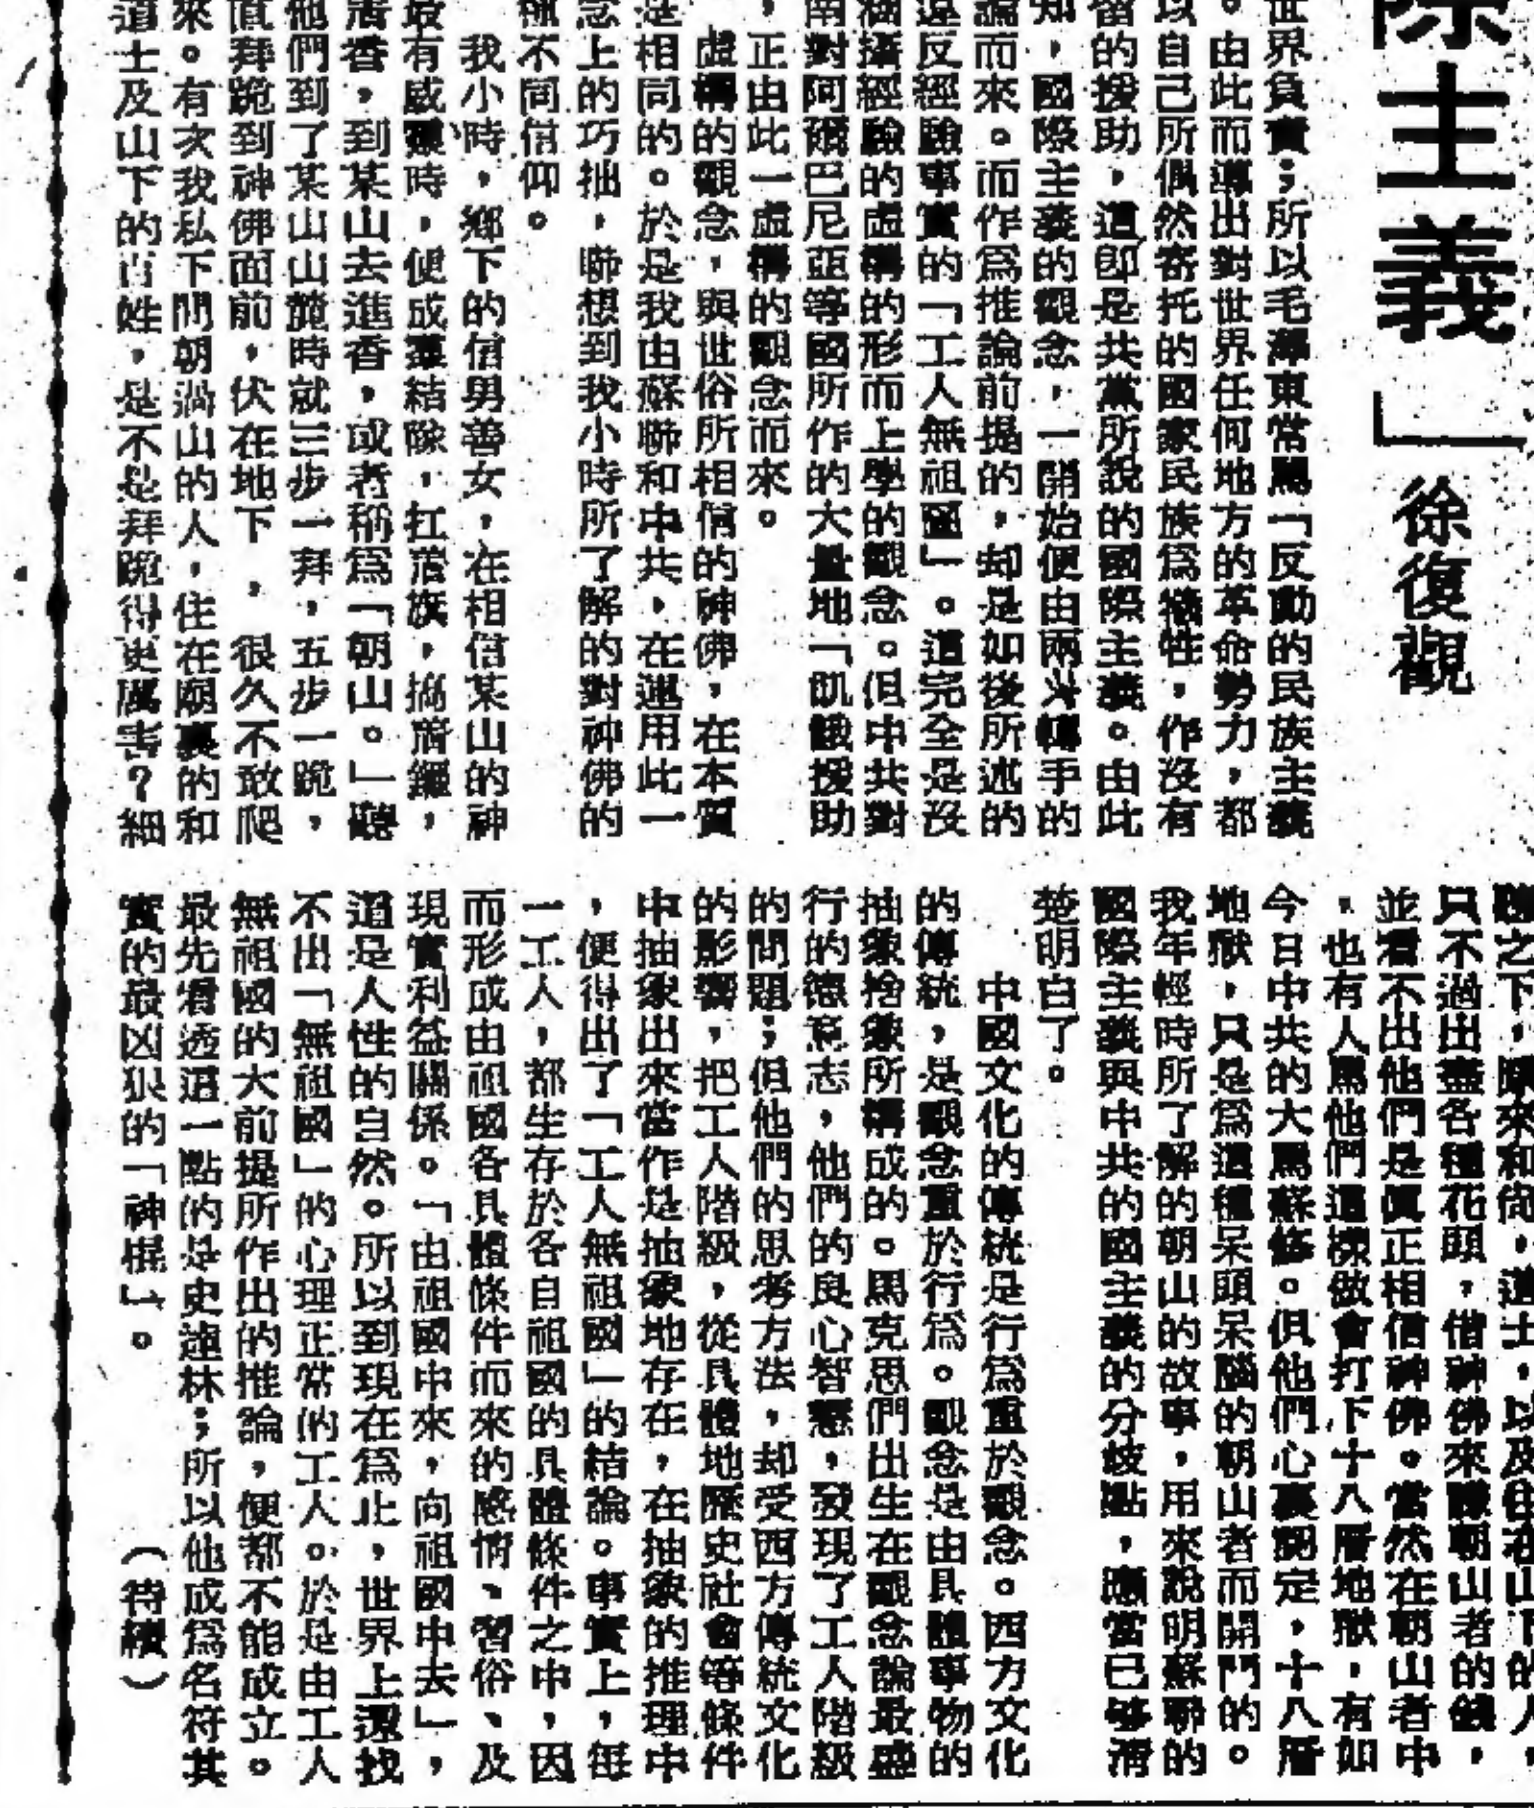 際主義」
徐復觀
世界負責；所以毛澤東常罵「反動的民族主義
。由此而導出對世界任何地方的革命勢力，都
以自己所偶然寄托的國家民族爲犧牲，作沒有
留的援助，這卽是共黨所說的國際主義。由此
知，國際主義的觀念，一開始便由兩
手的
論而來。而作爲推論前提的，却是如後所述的
違反經驗事實的「工人無祖國」。這完全是沒
涵攝經驗的虛構的形而上學的觀念。但中共對
南對阿爾巴尼亞等國所作的大量地「飢餓援助
，正由此一虛構的觀念而來。
虛構的觀念，與世俗所相信的神佛，在本質
是相同的。於是我由蘇聯和中共，在運用此一
念上的巧拙，聯想到我小時所了解的對神佛的
種不同信仰。
我小時，鄉下的信男善女，在相信某山的神
最有威靈時，便成羣結隊，扛著旗，搞著鑼，
著香，到某山去進香，或者稱爲「朝山。」聽
他們到了某山山麓時就三步一拜，五步一跪，
直拜跪到神佛面前，伏在地下，很久不敢爬
來。有次我私下問朝過山的人，住在廟裏的和
道士及山下的百姓，是不是拜跪得更厲害？細
之下，
來和尙，道士，以及住在山下的人，
只不過出盡各種花頭，借神佛來賺朝山者的錢，
並看不出他們是眞正相信神佛。當然在朝山者中
，也有人罵他們這樣做會打下十八層地獄，有如
今日中共的大罵蘇修。但他們心裏
定，十八層
地獄，只是爲這種呆頭呆腦的朝山者而開門的。
我年輕時所了解的朝山的故事，用來說明蘇聯的
國際主義與中共的國主義的分歧點，應當已够淸
楚明白了。
中國文化的傳統是行爲重於觀念。西方文化
的傳統，是觀念重於行爲。觀念是由具體事物的
抽象捨象所構成的。馬克思們出生在觀念論最盛
行的德意志，他們的良心智慧，發現了工人階級
的問題；但他們的思考方法，却受西方傳統文化
的影響，把工人階級，從具體地歷史社會等條件
中抽象出來當作是抽象地存在，在抽象的推理中
，便得出了「工人無祖國」的結論。事實上，每
一工人，都生存於各自祖國的具體條件之中，因
而形成由祖國各具體條件而來的感情、習俗、及
現實利益關係。「由祖國中來，向祖國中去」，
這是人性的自然。所以到現在爲止，世界上還找
不出「無祖國」的心理正常的工人。於是由工人
無祖國的大前提所作出的推論，便都不能成立。
最先看透這一點的是史達林；所以他成爲名符其
實的最凶狠的「神棍」。
（待續）